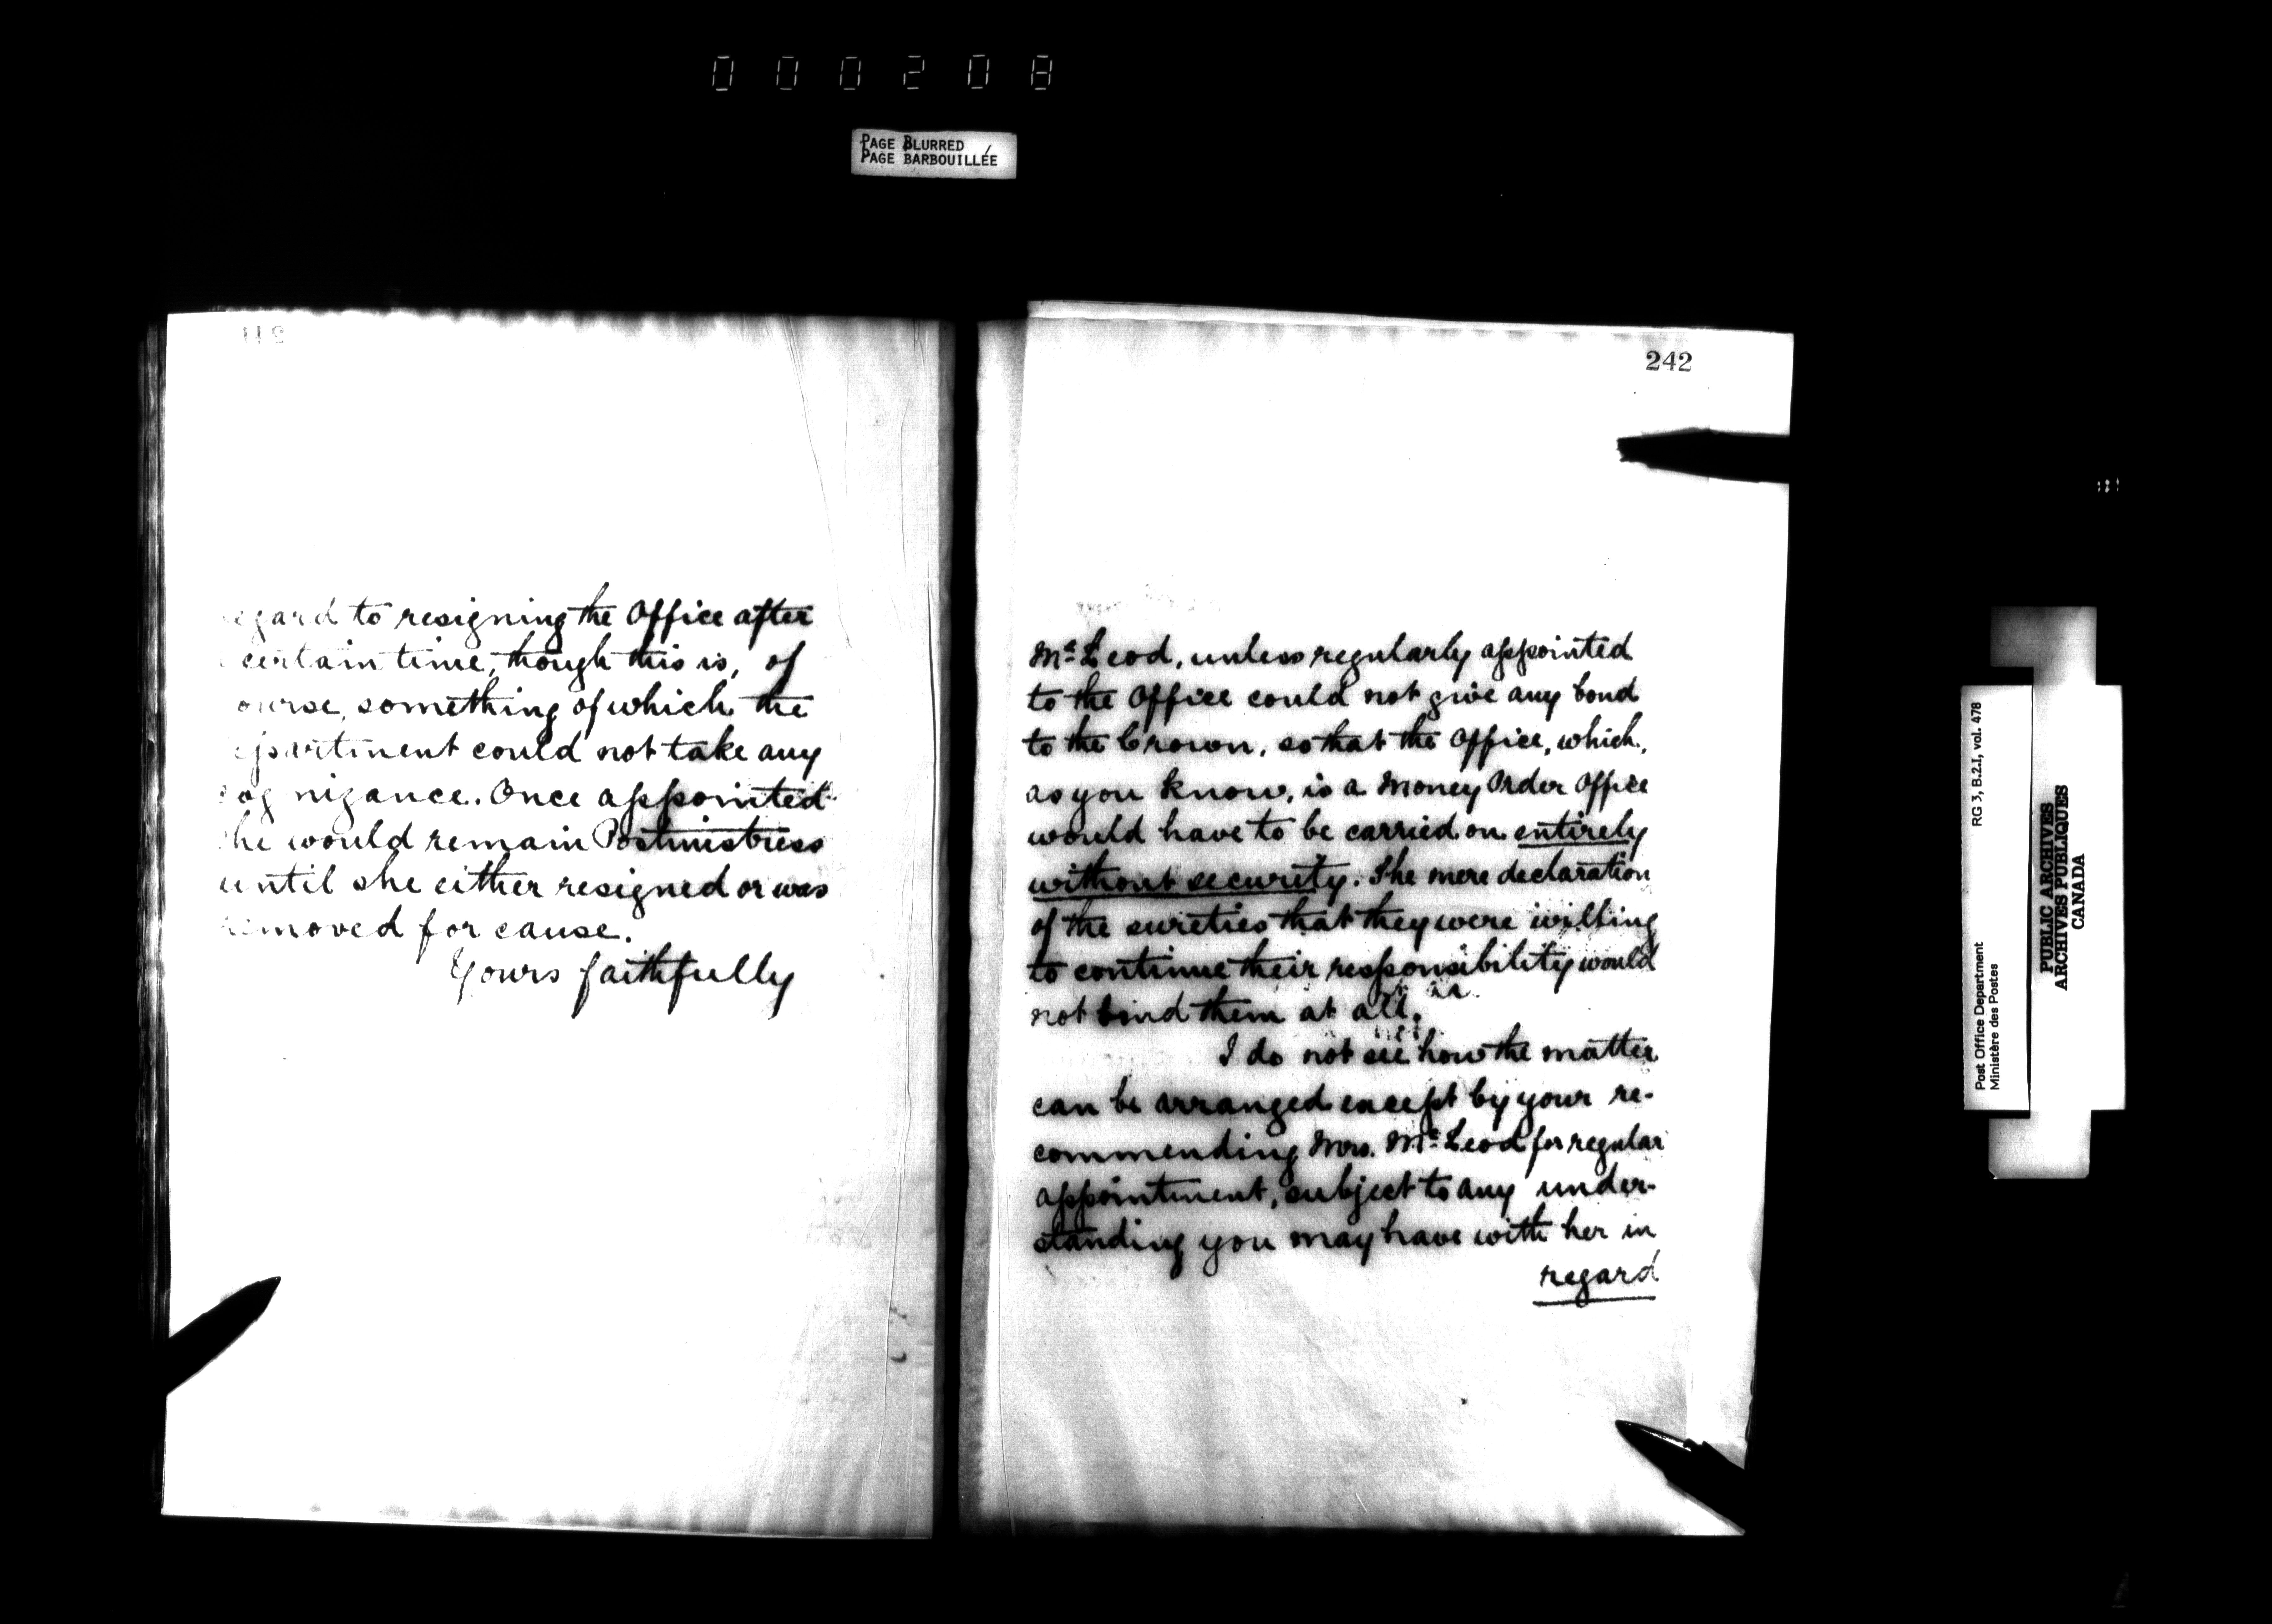 000208
PAGE BLURRED
PAGE BARBOUILLÉE
egard to resigning the Office after
certain time, though this is, of
ourse, something of which the
epartment could not take any
cognizance. Once appointed
he would remain Postmistress
until she either resigned or was
removed for cause.
Yours faithfully
242
Mc Leod, unless regularly appointed
to the Office could not give any bond
to the Crown, so that the Office, which,
as you know, is a Money Order Office
would have to be carried on entirely
without security. The mere declaration
of the sureties that they were willing
to continue their responsibility would
not bind them at all.
I do not see how the matter
can be arranged except by your re-
commending Mrs. Mc Leod for regular
appointment, subject to any under-
standing you may have with her in
regard
RG 3, B.2.I, vol. 478
Post Office Department
Ministère des Postes
PUBLIC ARCHIVES
ARCHIVES PUBLIQUES
CANADA